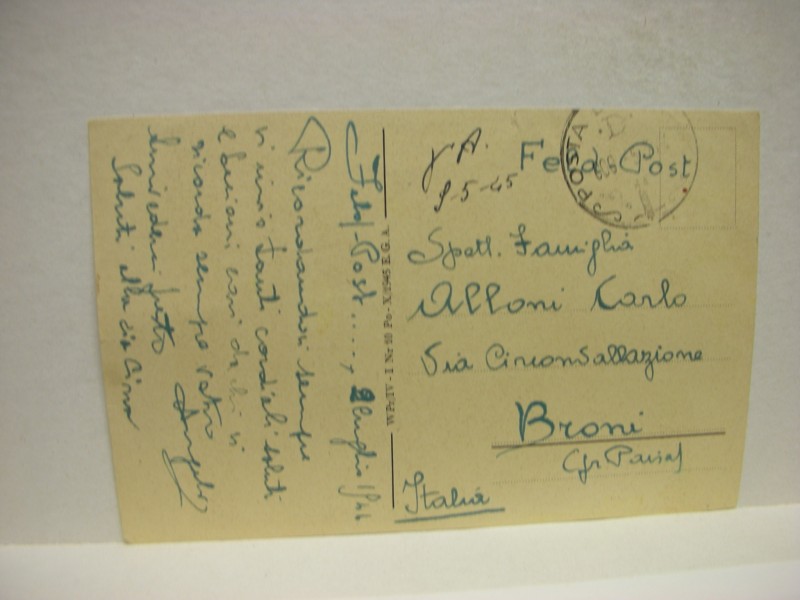 Feld-Post...., 2 luglio 1944
Ricordandovi sempre
vi invio tanti cordiali saluti
e bacioni cari da chi vi
ricorda sempre vostro
Angelo
Saluti alla zia Cina
W Pr. IV - I Nr 10 Po - X/0595 E. G. A.
9-5-45
Feld Post
POSTA
Spett. Famiglia
Alloni Carlo
Via Circonvallazione
Broni
Italia